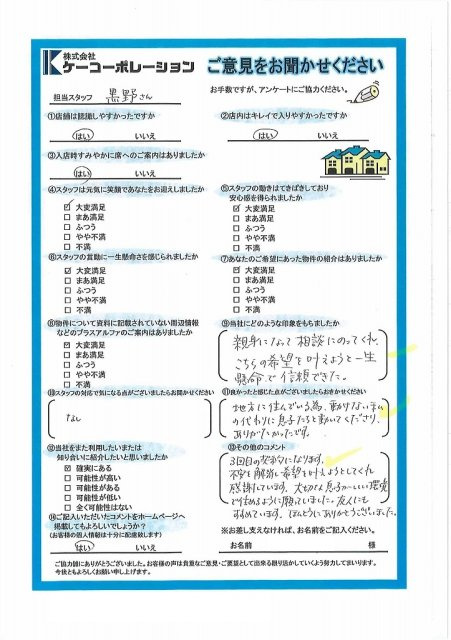 株式会社
ケーコーポレーション
ご意見をお聞かせください
担当スタッフ 黒野さん
お手数ですが、アンケートにご協力ください。
①店舗は認識しやすかったですか
はい いいえ
②店内はキレイで入りやすかったですか
はい いいえ
③入店時すみやかに席へのご案内はありましたか
はい いいえ
④スタッフは元気に笑顔であなたをお迎えしましたか
☑ 大変満足
□ まあ満足
□ ふつう
□ やや不満
□ 不満
⑤スタッフの動きはてきぱきしており
安心感を得られましたか
☑ 大変満足
□ まあ満足
□ ふつう
□ やや不満
□ 不満
⑥スタッフの言動に一生懸命さを感じられましたか
☑ 大変満足
□ まあ満足
□ ふつう
□ やや不満
□ 不満
⑦あなたのご希望にあった物件の紹介はありましたか
☑ 大変満足
□ まあ満足
□ ふつう
□ やや不満
□ 不満
⑧物件について資料に記載されていない周辺情報
などのプラスアルファのご案内はありましたか
☑ 大変満足
□ まあ満足
□ ふつう
□ やや不満
□ 不満
⑨当社にどのような印象をもちましたか
親身になって相談にのってくれ
こちらの希望を叶えようと一生
懸命で信頼できた。
⑩スタッフの対応で気になる点がございましたらお聞かせください
なし
⑪良かったと感じた点がございましたらおきかせください
地方に住んでいる為、動けない私
の代わりに息子たちと動いてくださり、
ありがたかったです。
⑫当社をまた利用したいまたは
知り合いに紹介したいと思いましたか
☑ 確実にある
□ 可能性が高い
□ 可能性がある
□ 可能性が低い
□ 全く可能性はない
⑬その他のコメント
3回目の契約になります。
不安を解消し希望を叶えようとしてくれ
感謝しています。大切な息子が
で住めるように願っていました。友人にも
すすめています。ほんとうにありがとうございました。
⑭ご記入いただいたコメントをホームページへ
掲載してもよろしいでしょうか?
(お客様の個人情報は十分に配慮致します)
はい いいえ
※お差し支えなければ、お名前をご記入ください。
お名前 様
ご協力誠にありがとうございました。お客様の声は貴重なご意見・ご要望として出来る限り活かしていくよう努力してまいります。
今後ともよろしくお願い申し上げます。